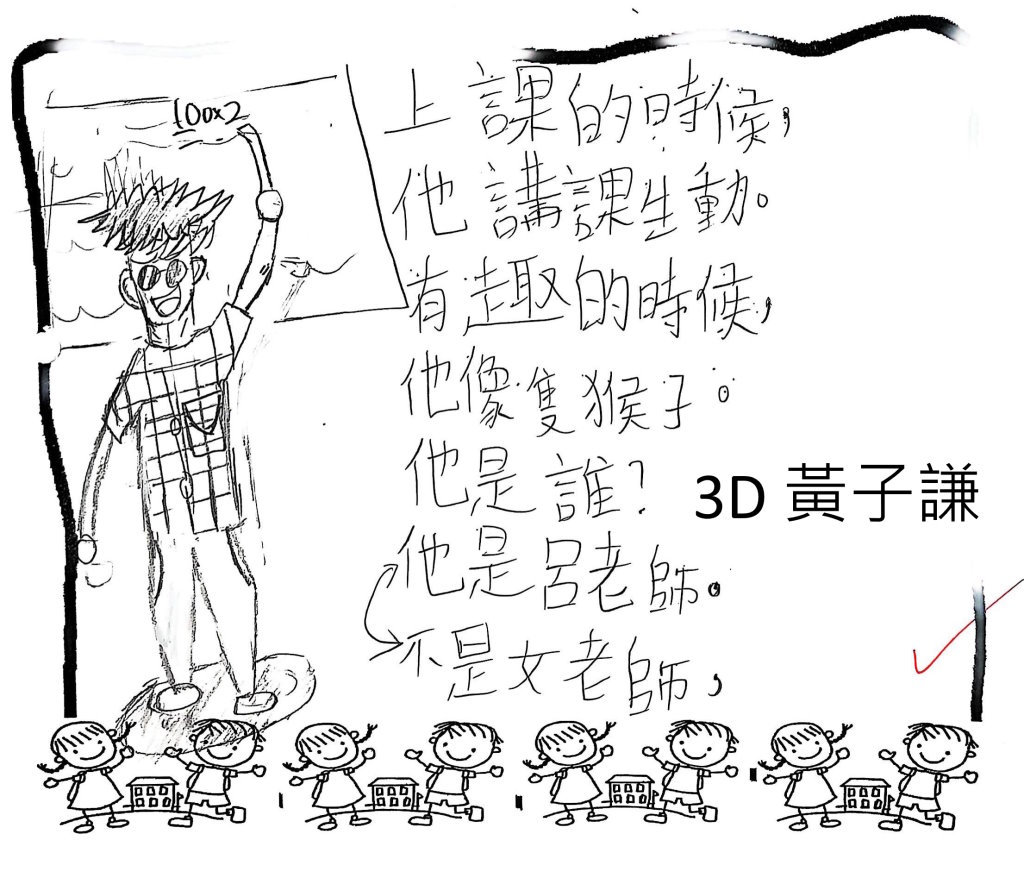 100×2
上課的時候，
他講課生動。
有趣的時候，
他像隻猴子。
他是誰？
3D 黃子謙
他是呂老師。
不是女老師，